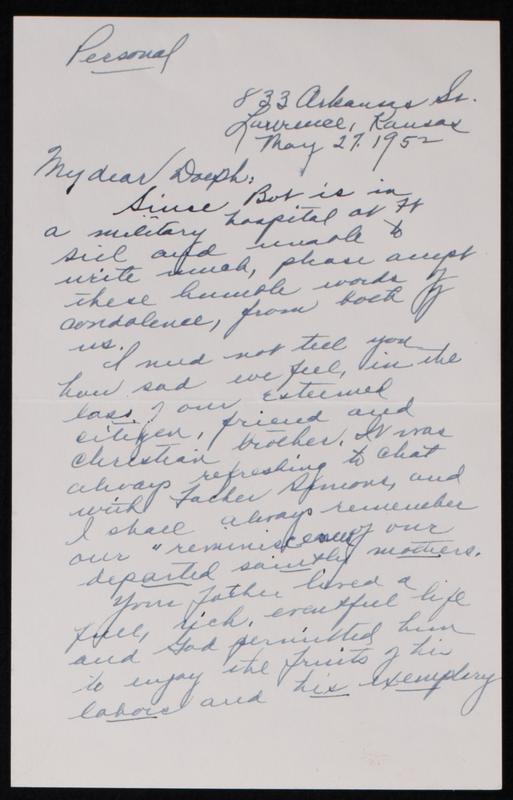 Personal
833 Arkansas St.
Lawrence, Kansas
May 27, 1952
My dear Dolph:
Since Bot is in
a military hospital at Ft
Sill and unable to
write much, please accept
these humble words of
condolence, from both of
us.
I need not tell you
how sad we feel, in the
loss of our esteemed
citizen, friend and
Christian brother. It was
always refreshing to chat
with Father Simons, and
I shall always remember
our "reminiscences" of our
departed saintly mothers.
Your father lived a
full, rich, eventful life
and God permitted him
to enjoy the fruits of his
labors and his exemplary